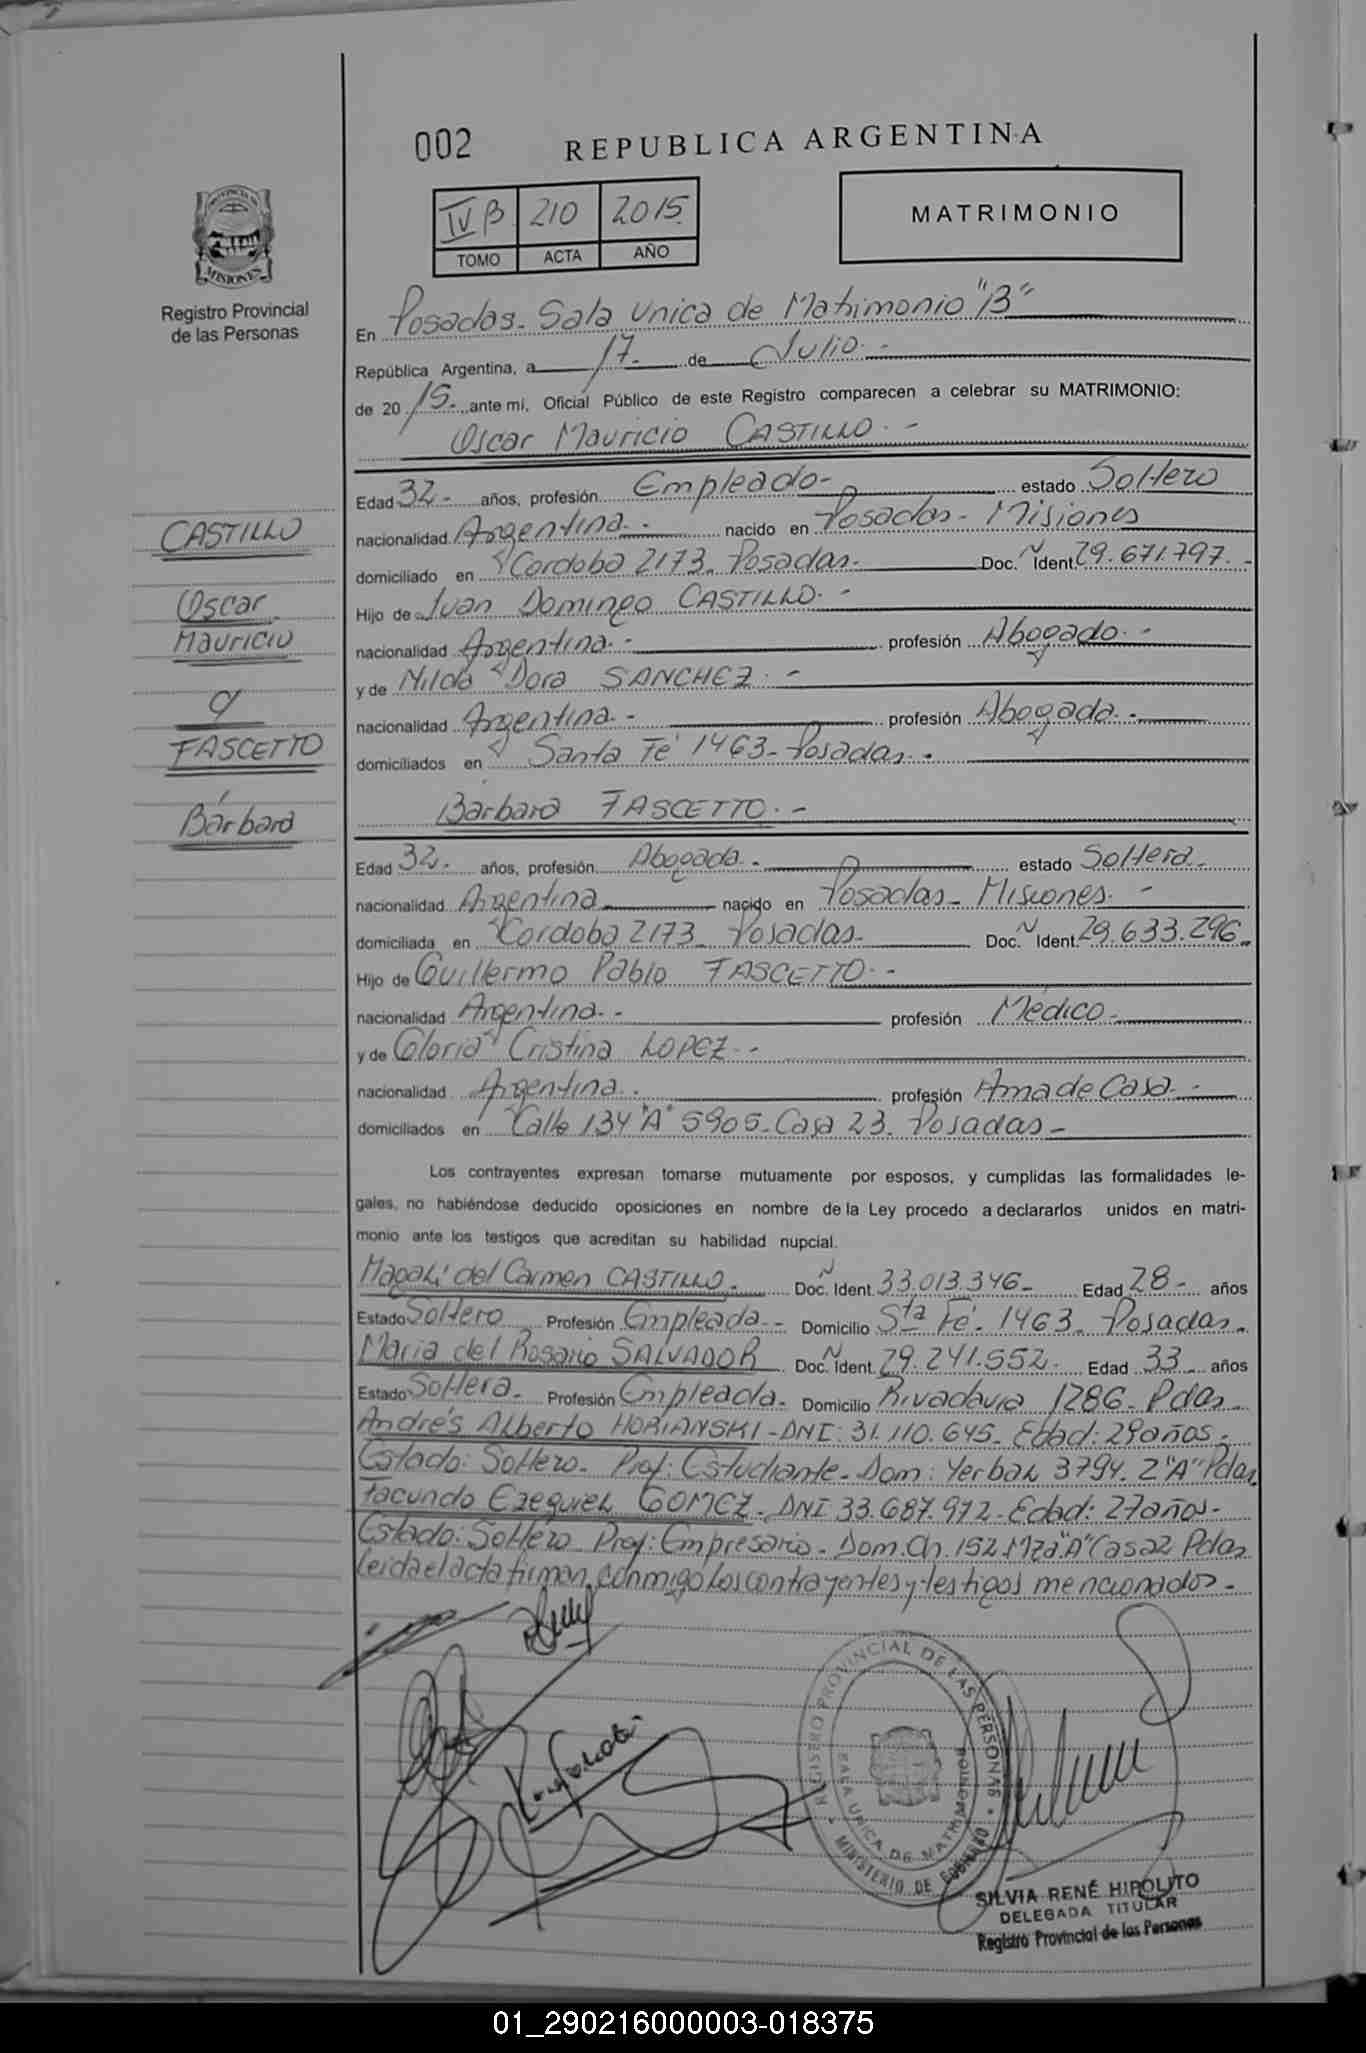 002 REPUBLICA ARGENTINA
PROVINCIA DE MISIONES
Registro Provincial
de las Personas
IV B 210 2015
TOMO ACTA AÑO
MATRIMONIO
En Posadas. Sala Unica de Matrimonio "B"
República Argentina, a 17. de Julio. -
de 2015. ante mi, Oficial Público de este Registro comparecen a celebrar su MATRIMONIO:
Oscar Mauricio CASTILLO. -
Edad 32- años, profesión Empleado- estado Soltero
nacionalidad Argentina. - nacido en Posadas- Misiones
domiciliado en Cordoba 2173. Posadas. Doc. N Ident. 29.671.797. -
Hijo de Juan Domingo CASTILLO. -
nacionalidad Argentina. - profesión Abogado. -
y de Nilda Dora SANCHEZ. -
nacionalidad Argentina. - profesión Abogada. -
domiciliados en Santa Fé 1463- Posadas.
CASTILLO
Oscar
Mauricio
y
FASCETTO
Bárbara
Bárbara FASCETTO. -
Edad 32. años, profesión Abogada. estado Soltera.
nacionalidad Argentina nacido en Posadas- Misiones. -
domiciliada en Cordoba 2173 Posadas. Doc. N Ident. 29.633.296.
Hijo de Guillermo Pablo FASCETTO. -
nacionalidad Argentina. - profesión Médico.
y de Gloria Cristina LOPEZ. -
nacionalidad Argentina. profesión Ama de Casa.
domiciliados en Calle 134 "A" 5905. Casa 23. Posadas-
Los contrayentes expresan tomarse mutuamente por esposos, y cumplidas las formalidades le-
gales, no habiéndose deducido oposiciones en nombre de la Ley procedo a declararlos unidos en matri-
monio ante los testigos que acreditan su habilidad nupcial.
Magalí del Carmen CASTILLO. Doc. N Ident. 33.013.346- Edad 28- años
Estado Soltero Profesión Empleada- Domicilio Sta Fé. 1463. Posadas.
Maria del Rosario SALVADOR Doc. N Ident. 29.241.552. Edad 33 años
Estado Soltera. Profesión Empleada. Domicilio Rivadavia 1286. Pdas.
Andrés Alberto HORIANSKI- DNI: 31.110.645. Edad: 29 años.
Estado: Soltero. Prof: Estudiante. Dom: Yerbal 3794. 2 "A" Pdas
Facundo Ezequiel GOMEZ. DNI 33.687.972. Edad: 27 años-
Estado: Soltero Prof: Empresario. Dom. Ch. 152 Mza "A" Casa 2 Pdas
Leida el acta firman conmigo los contrayentes y testigos mencionados.
REGISTRO PROVINCIAL DE LAS PERSONAS
SALA UNICA DE MATRIMONIOS
MINISTERIO DE GOBIERNO
SILVIA RENÉ HIPOLITO
DELEGADA TITULAR
Registro Provincial de las Personas
01_290216000003-018375